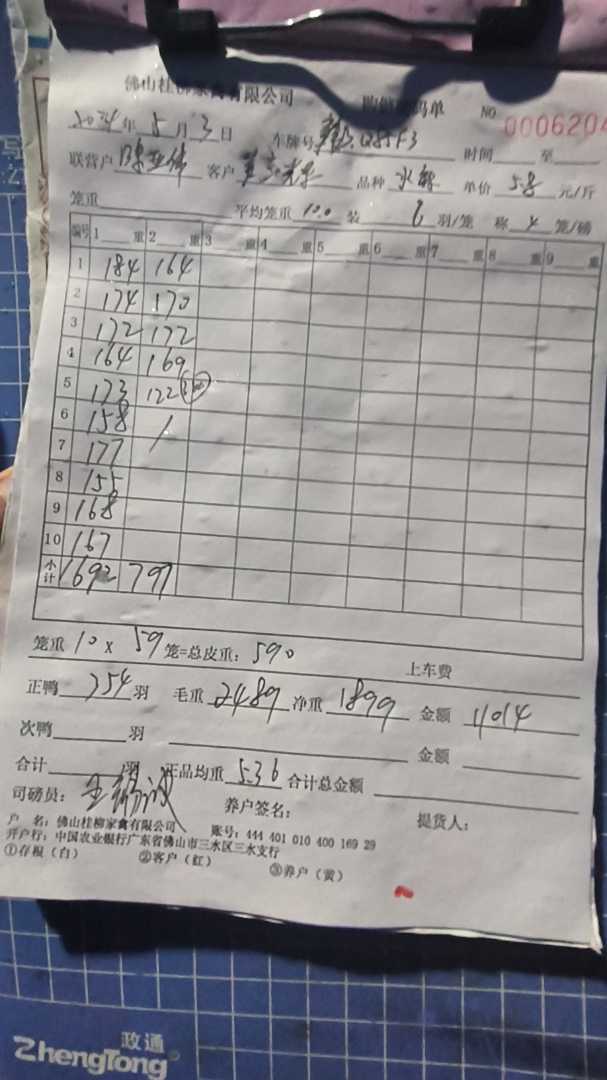 佛山桂柳家禽有限公司 码单 NO 0006204
2024年5月13日 车牌号 Q85F3 时间 至
联营户 客户 品种 水鸭 单价 5.8 元/斤
笼重 平均笼重 10.0 装 6 羽/笼 称 4 笼/磅
编号 1 重 2 重 3 重 4 重 5 重 6 重 7 重 8 重 9 重
1 184 164
2 174 170
3 172 172
4 164 169
5 173 122
6 158 /
7 177
8 155
9 168
10 167
小计 1692 797
笼重 10 x 59 笼=总皮重: 590 上车费
正鸭 354 羽 毛重 2489 净重 1899 金额 11014
次鸭 羽 金额
合计 羽 正品均重 5.36 合计总金额
司磅员: 养户签名: 提货人:
户 名: 佛山桂柳家禽有限公司 账号: 444 401 010 400 169 29
开户行: 中国农业银行广东省佛山市三水区三水支行
①存根（白） ②客户（红） ③养户（黄）
政通
ZhengTong